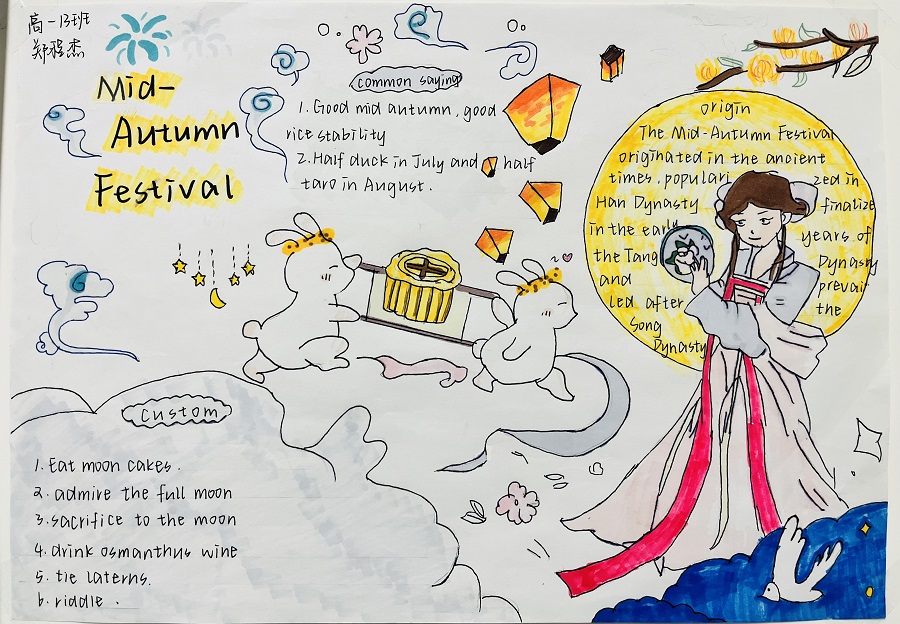 高一13班
Mid-
Autumn
Festival
common saying
1. Good mid autumn, good
rice stability
2. Half duck in July and half
taro in August.
origin
The Mid-Autumn Festival
originated in the ancient
times, populari zed in
Han Dynasty finalize
in the early years of
the Tang Dynasty
and prevai-
led after the
Song
Dynasty
custom
1. Eat moon cakes.
2. admire the full moon
3. sacrifice to the moon
4. drink osmanthus wine
5. tie laterns.
6. riddle.